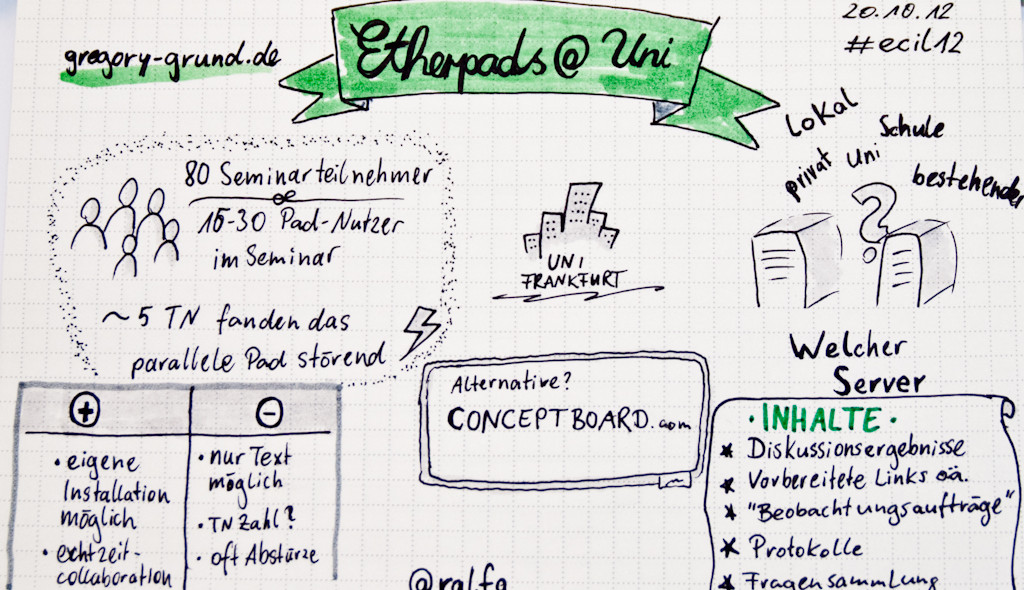 gregory-grund.de
Etherpads @ Uni
20.10.12
#ecil12
80 Seminarteilnehmer
15-30 Pad-Nutzer
im Seminar
~ 5 TN fanden das
parallele Pad störend
UNI
FRANKFURT
Lokal
Schule
privat
Uni
bestehender
?
Welcher
Server
+
• eigene
Installation
möglich
• echtzeit-
collaboration
-
• nur Text
möglich
• TN Zahl?
• oft Abstürze
Alternative?
CONCEPTBOARD.com
• INHALTE •
* Diskussionsergebnisse
* Vorbereitete Links oä.
* "Beobachtungsaufträge"
* Protokolle
* Fragensammlung
@ralfa